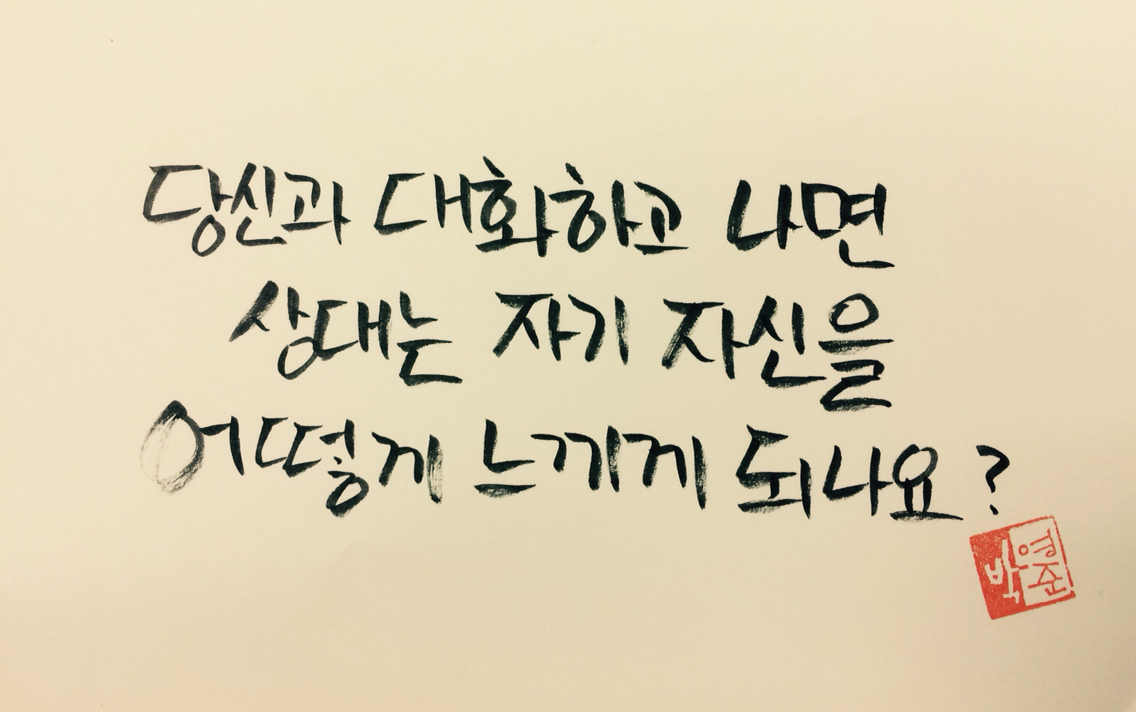 당신과 대화하고 나면
상대는 자기 자신을
어떻게 느끼게 되나요?
박영준